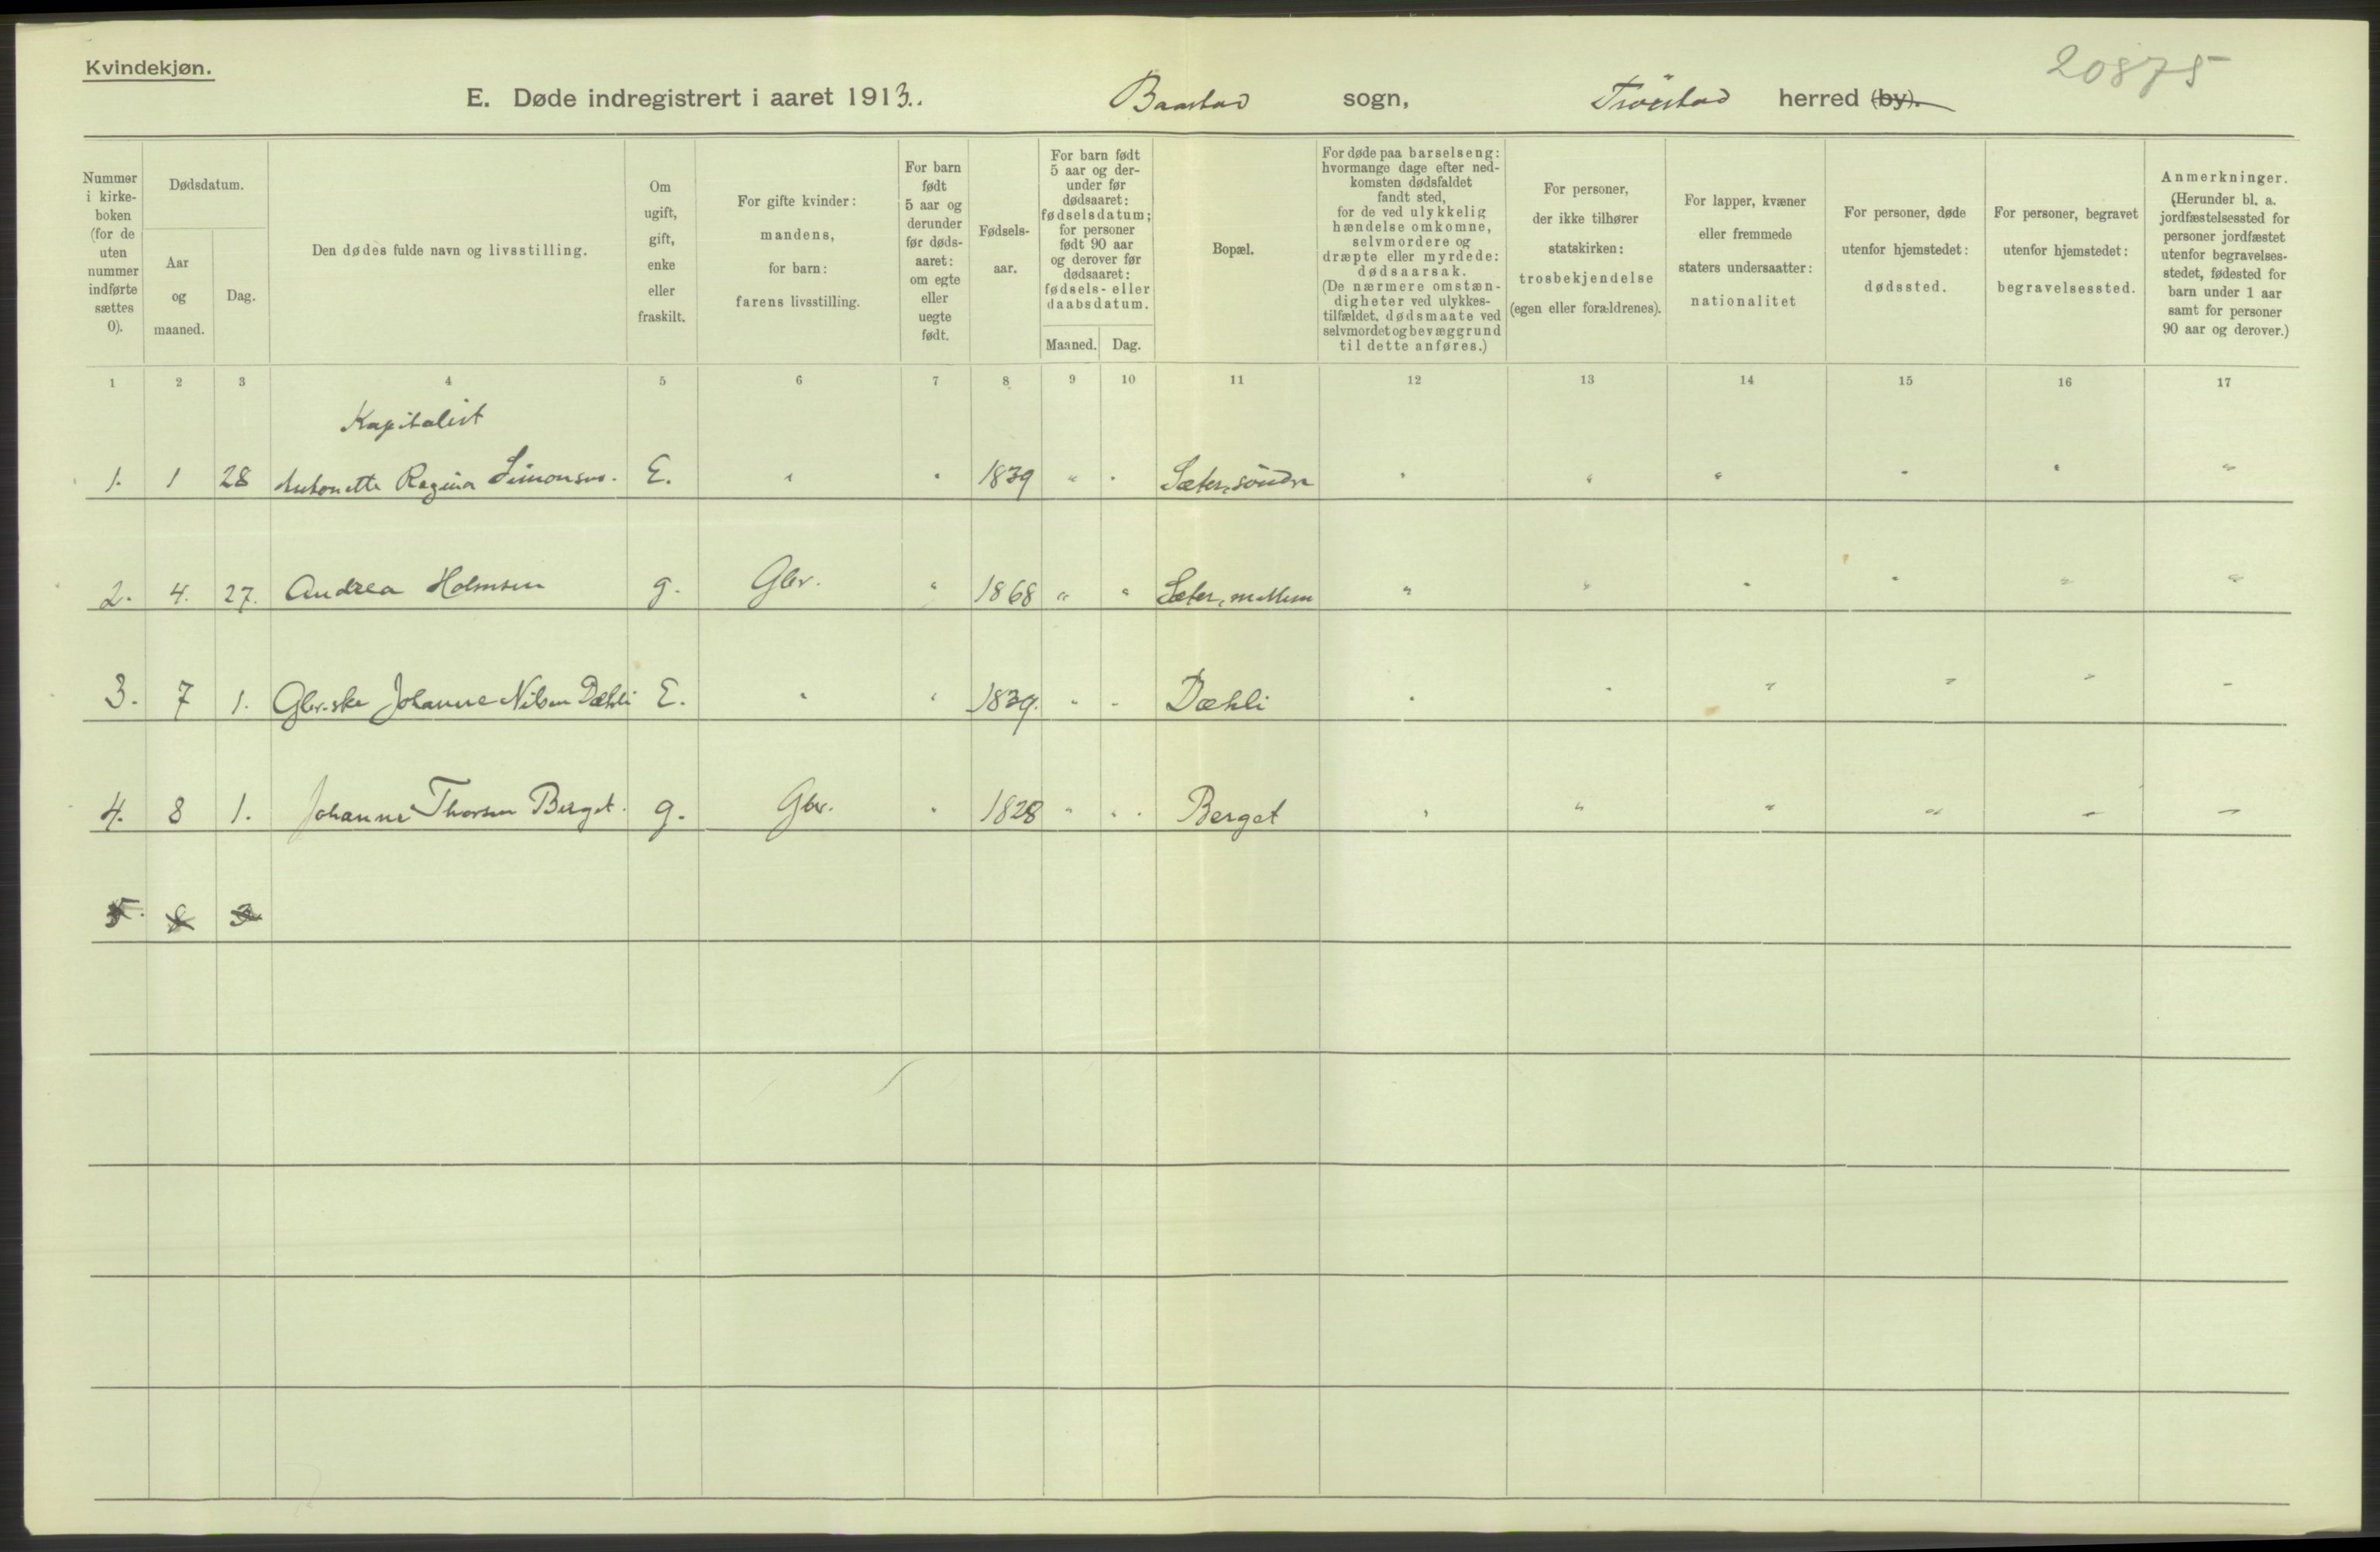 Kvindekjøn.
20875
E. Døde indregistrert i aaret 1913. Baastad sogn, Trøistad herred (by).
Nummer i kirke-boken (for de uten nummer indførte sættes 0).
Dødsdatum.
Aar og maaned.
Dag.
Den dødes fulde navn og livsstilling.
Om ugift, gift, enke eller fraskilt.
For gifte kvinder: mandens, for barn: farens livsstilling.
For barn født 5 aar og derunder før døds-aaret: om egte eller uegte født.
Fødsels-aar.
For barn født 5 aar og der-under før dødsaaret: fødselsdatum; for personer født 90 aar og derover før dødsaaret: fødsels- eller daabsdatum.
Maaned.
Dag.
Bopæl.
For døde paa barselseng: hvormange dage efter ned-komsten dødsfaldet fandt sted, for de ved ulykkelig hændelse omkomne, selvmordere og dræpte eller myrdede: dødsaarsak. (De nærmere omstæn-digheter ved ulykkes-tilfældet, dødsmaate ved selvmordet og bevæggrund til dette anføres.)
For personer, der ikke tilhører statskirken: trosbekjendelse (egen eller forældrenes).
For lapper, kvæner eller fremmede staters undersaatter: nationalitet
For personer, døde utenfor hjemstedet: dødssted.
For personer, begravet utenfor hjemstedet: begravelsessted.
Anmerkninger. (Herunder bl. a. jordfæstelsessted for personer jordfæstet utenfor begravelses-stedet, fødested for barn under 1 aar samt for personer 90 aar og derover.)
1 2 3 4 5 6 7 8 9 10 11 12 13 14 15 16 17
Kapitalist
1. 1 28 Antonette Regina Simonsen. E. " " 1839 " " Sæter, söndre " " " " " "
2. 4. 27. Andrea Holmsen g. Gbr. " 1868 " " Sæter, mellem " " " " " "
3. 7 1. Gbr.ske Johanne Nilsen Dæhli E. " " 1839. " " Dæhli " " " " " "
4. 8 1. Johanne Thorsen Berget. g. Gbr. " 1828 " " Berget " " " " " "
5. 8 3